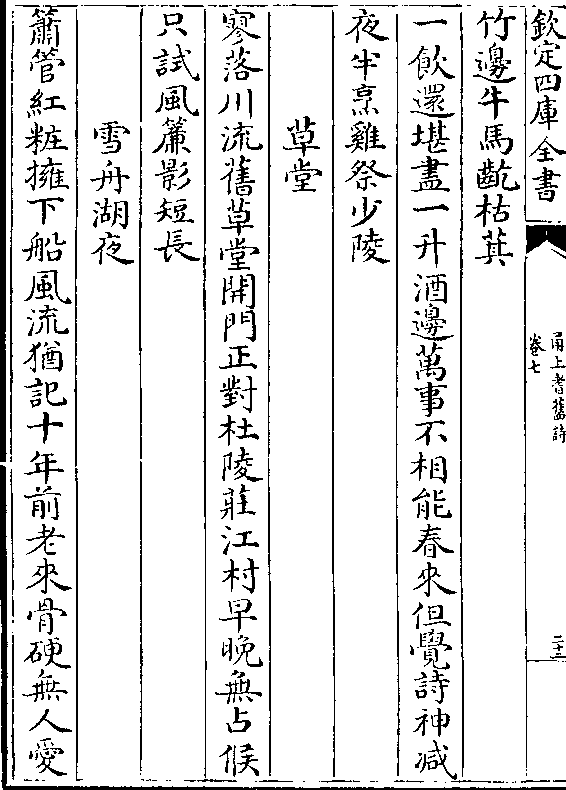 欽定四庫全書
甬上耆舊詩
卷七
二十三
竹邊牛馬齕枯萁
一飲還堪盡一升酒邊萬事不相能春來但覺詩神減
夜半烹雞祭少陵
草堂
寥落川流舊草堂開門正對杜陵莊江村早晚無占候
只試風簾影短長
雪舟湖夜
簫管紅粧擁下船風流猶記十年前老來骨硬無人愛